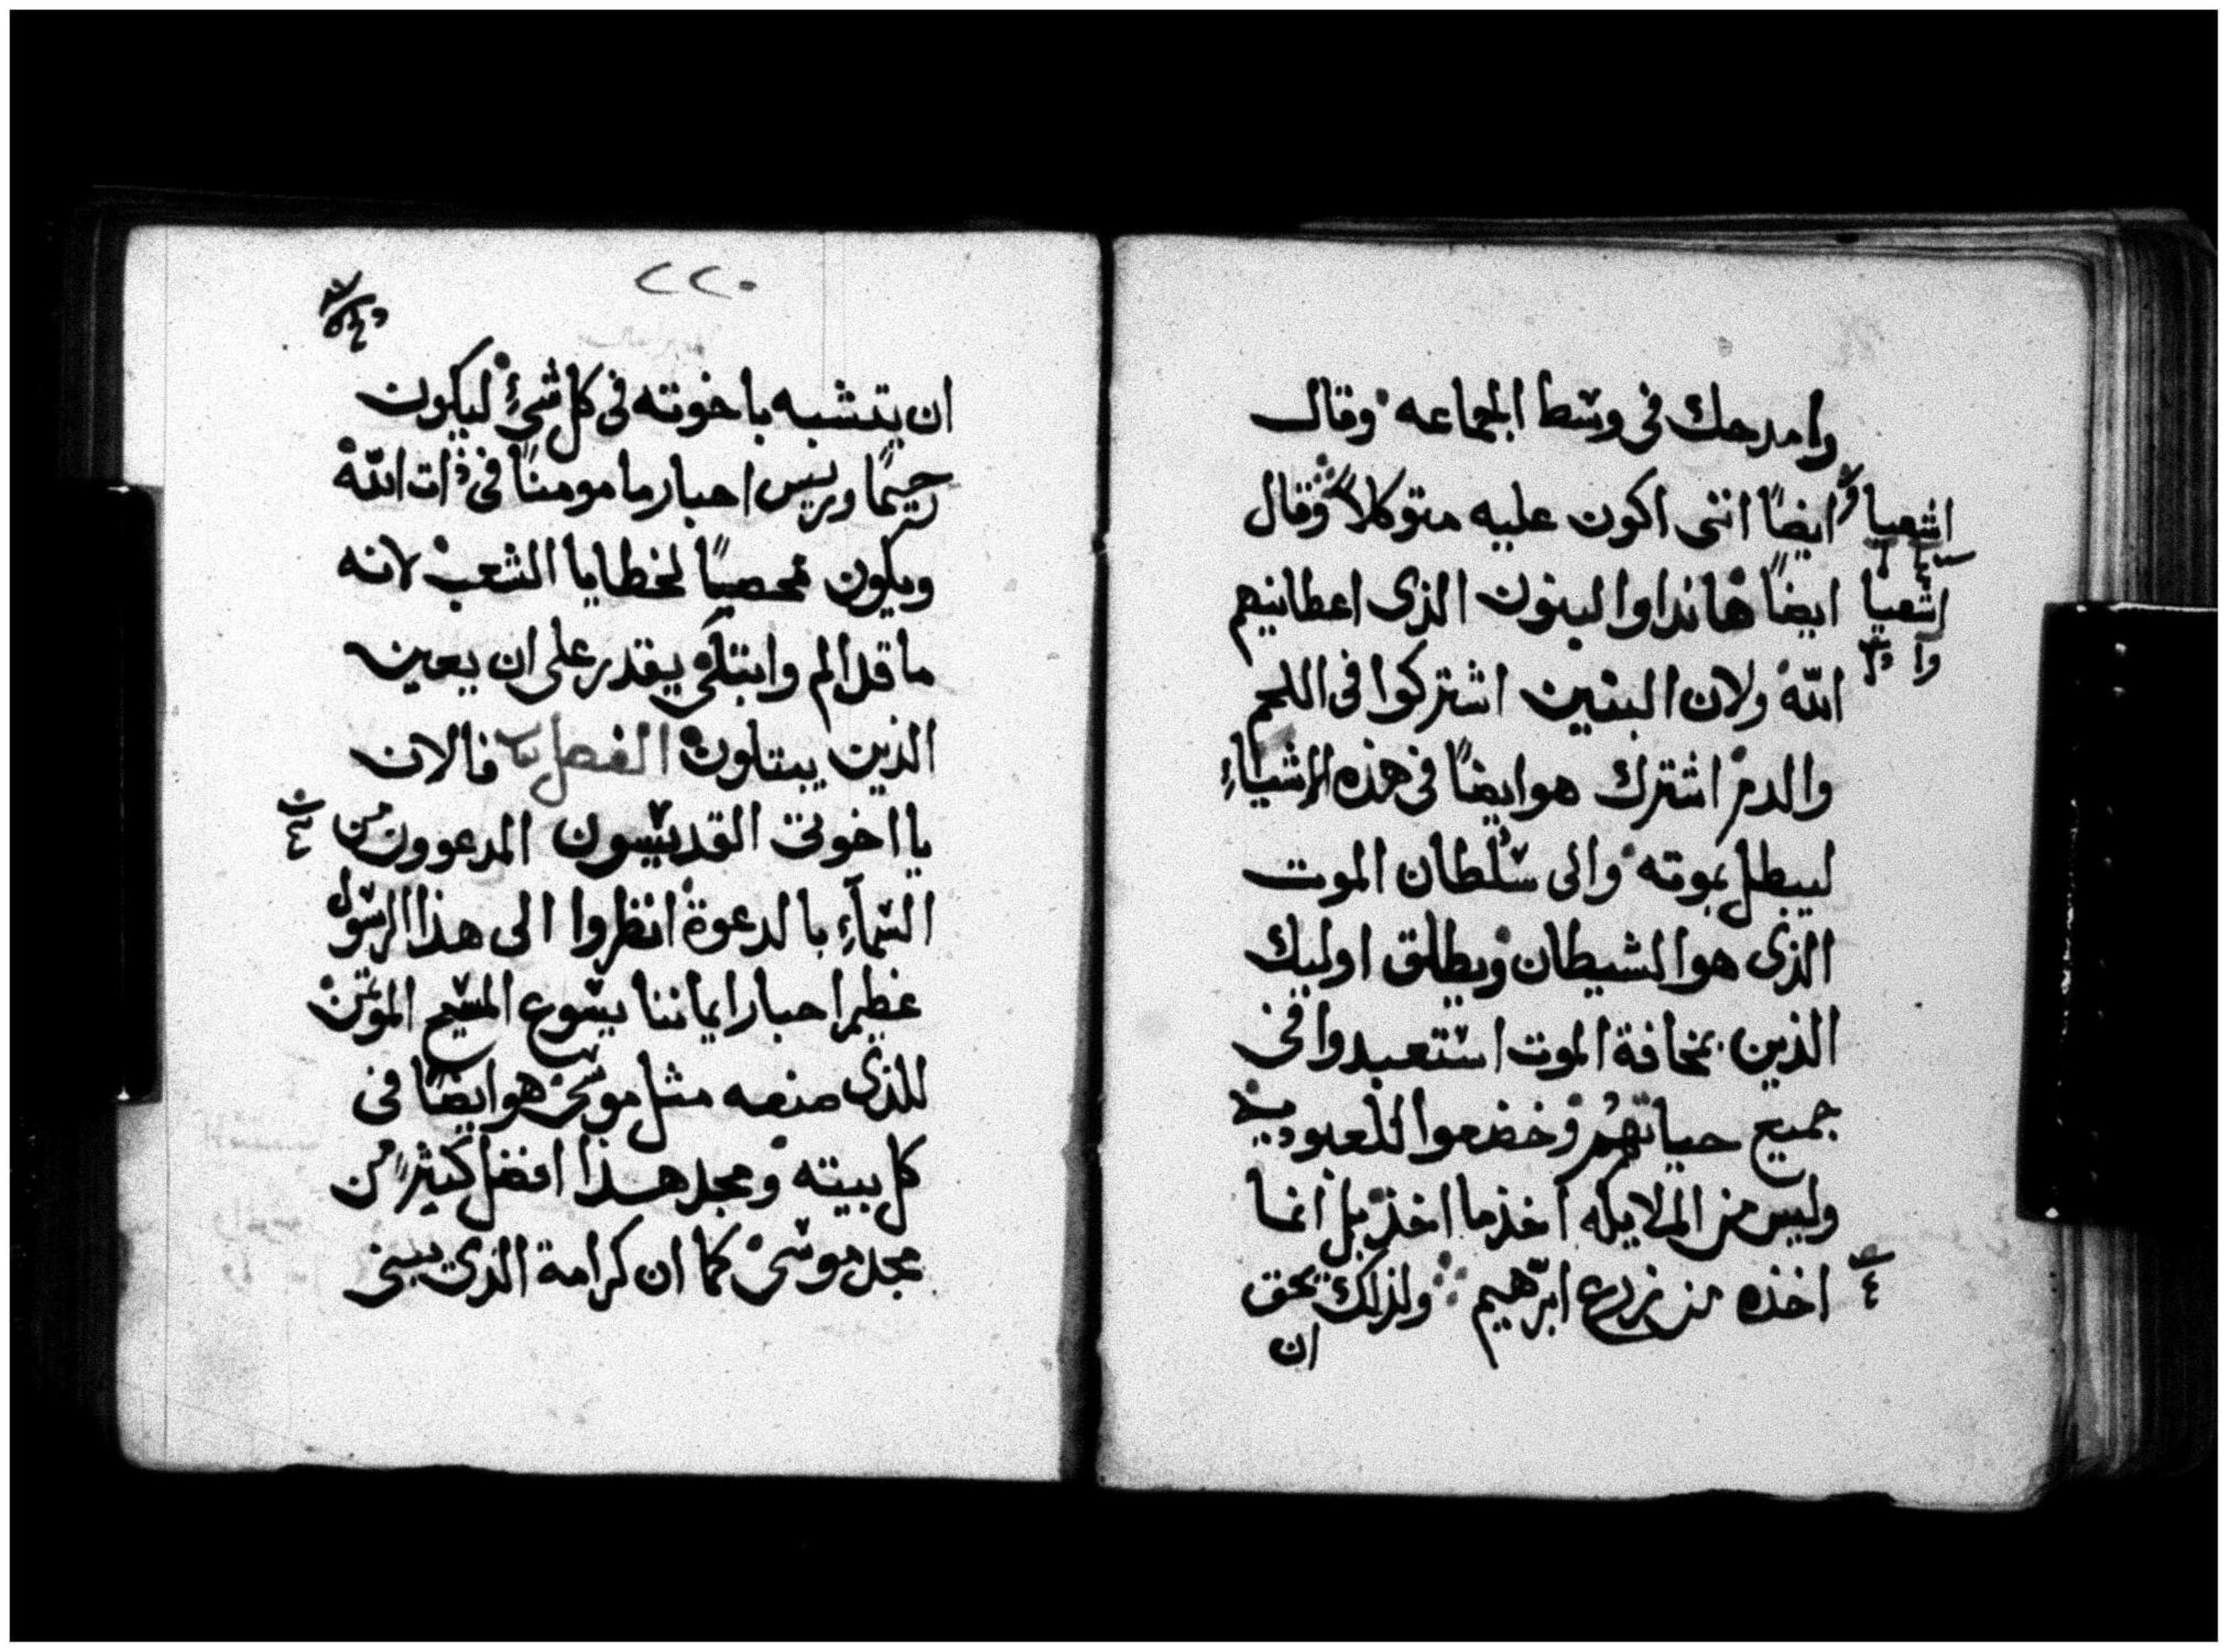 وامدحك فى وسط الجماعه وقال
اشعيا
ايضًا اننى اكون عليه متوكلاً وقال
اشعيا
ايضًا هانذا والبنون الذى اعطانيهم
الله ولان البنين اشتركوا فى اللحم
والدم اشترك هو ايضًا فى هذه الاشياءِ
ليبطل بموته والى سُلطان الموت
الذى هو الشيطان ويطلق اوليك
الذين بمخافة الموت استعبدوا فى
جميع حياتهم وخضعوا للعبوديه
وليس من الملايكه اخذ ما اخذ بل انما
اخذه من زرع ابرهيم ولذلك يحق
ان
٢٢٠
ان يتشبه باخوته فى كل شىءٍ ليكون
رحيمًا وريس احبار مامومنًا فى ذات الله
ويكون ممحصيًا لخطايا الشعب لانه
ما قد الم وابتلى يقدر على ان يعين
الذين يبتلون الفصل فالان
يا اخوتى القديسون المدعوون من
السماءِ بالدعوة انظروا الى هذا الرسول
عظيم احبار ايماننا يسوع المسيح الموتمن
للذى صنعه مثل موسى هو ايضًا فى
كل بيته ومجد هذا افضل كثيرًا من
مجد موسى كما ان كرامة الذى يبنى